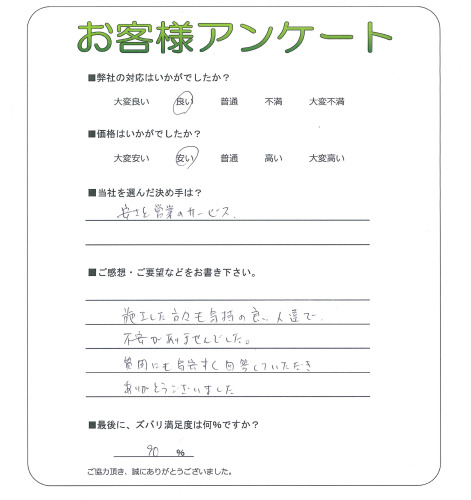 お客様アンケート
■弊社の対応はいかがでしたか？
大変良い 良い 普通 不満 大変不満
■価格はいかがでしたか？
大変安い 安い 普通 高い 大変高い
■当社を選んだ決め手は？
安さと営業のサービス。
■ご感想・ご要望などをお書き下さい。
施工した方々も気持の良い人達で
不安がありませんでした。
質問にも気安すく回答していただき
ありがとうございました
■最後に、ズバリ満足度は何%ですか？
90 %
ご協力頂き、誠にありがとうございました。